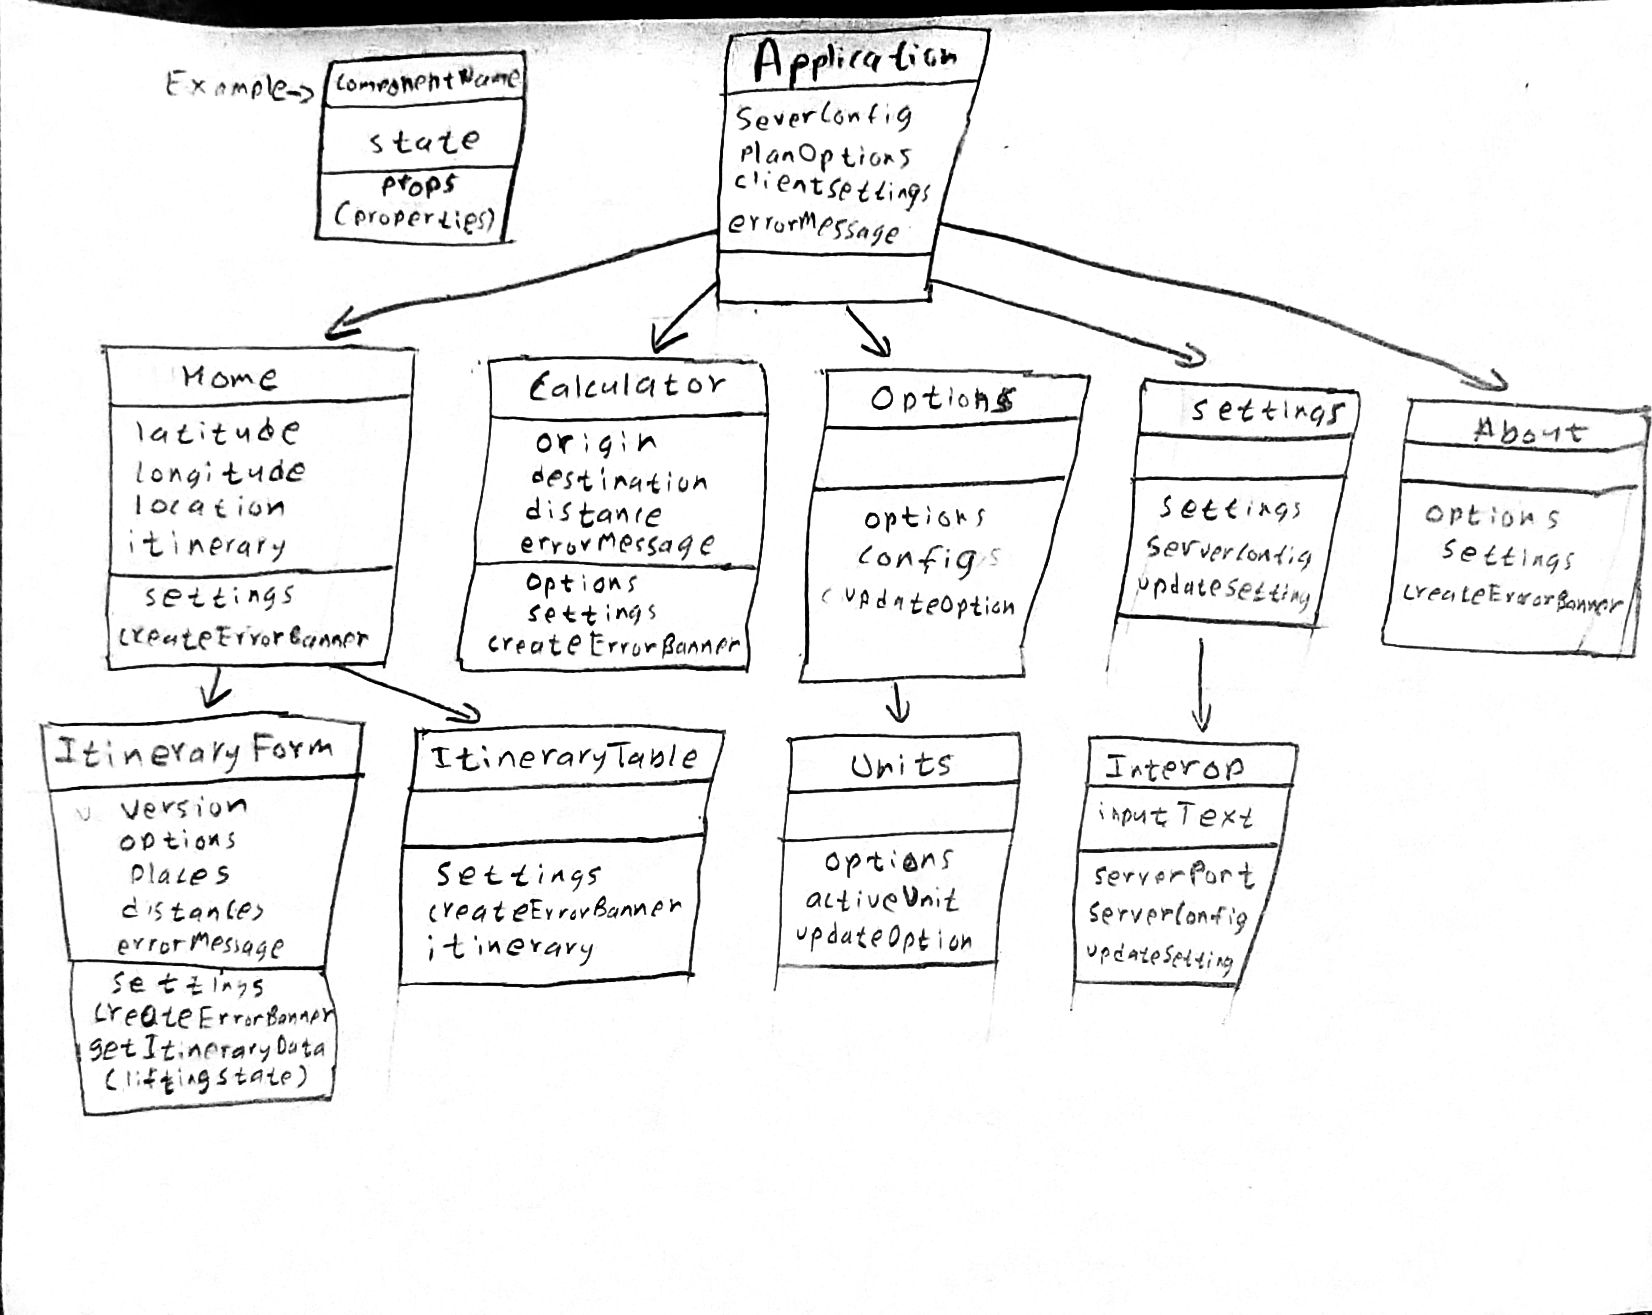 Example->
ComponentName
state
props
(properties)
Application
SeverConfig
planOptions
clientSettings
errorMessage
Home
latitude
longitude
location
itinerary
settings
createErrorBanner
Calculator
origin
destination
distance
errorMessage
options
settings
createErrorBanner
Options
options
config
updateOption
settings
settings
serverConfig
updateSetting
About
options
settings
createErrorBanner
ItineraryForm
version
options
places
distances
errorMessage
settings
createErrorBanner
getItineraryData
(liftingState)
ItineraryTable
settings
createErrorBanner
itinerary
Units
options
activeUnit
updateOption
Interop
inputText
serverPort
serverConfig
updateSetting